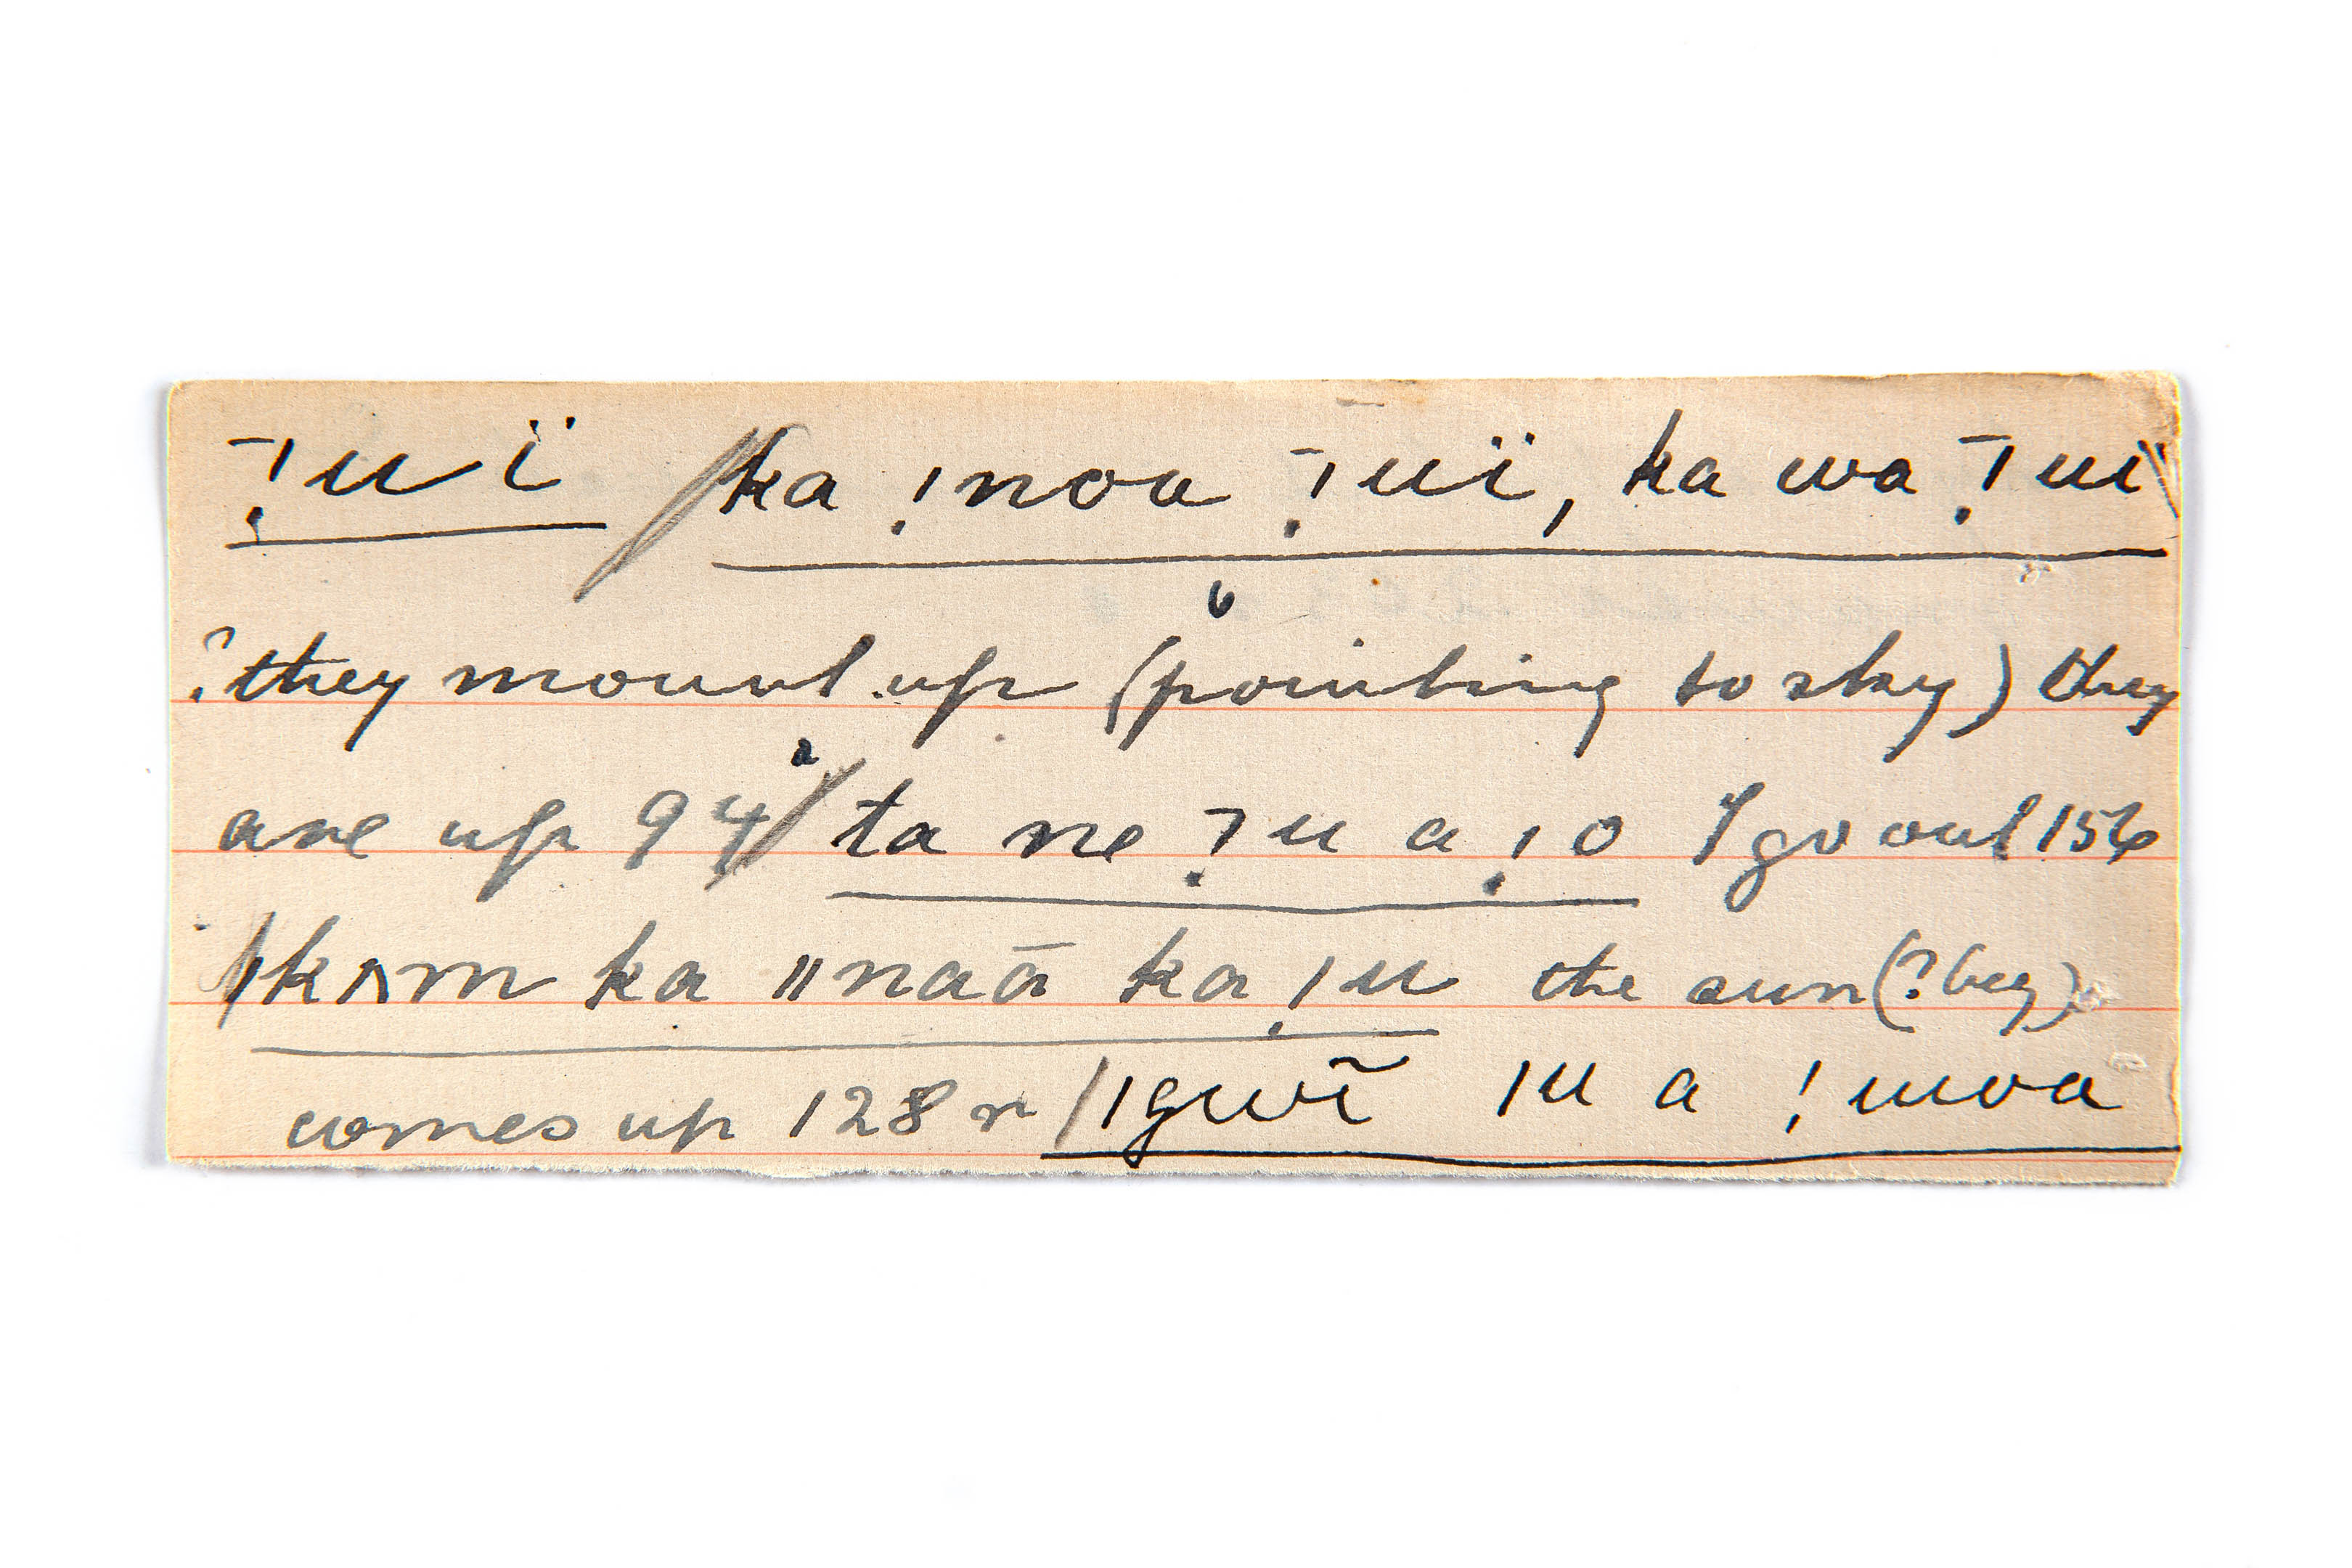 ˉǃuï ka ǃnoa ˉǃuï, ka wa ˉǃui
? they mount up (pointing to sky) they
are up 94 ta ne ˉǃu a ǃo I go out 156
kʌm ka ǁnaā ka ǃu the sun (? beg)
comes up 128 r ǀgwĩ ǀu a ! uwoa